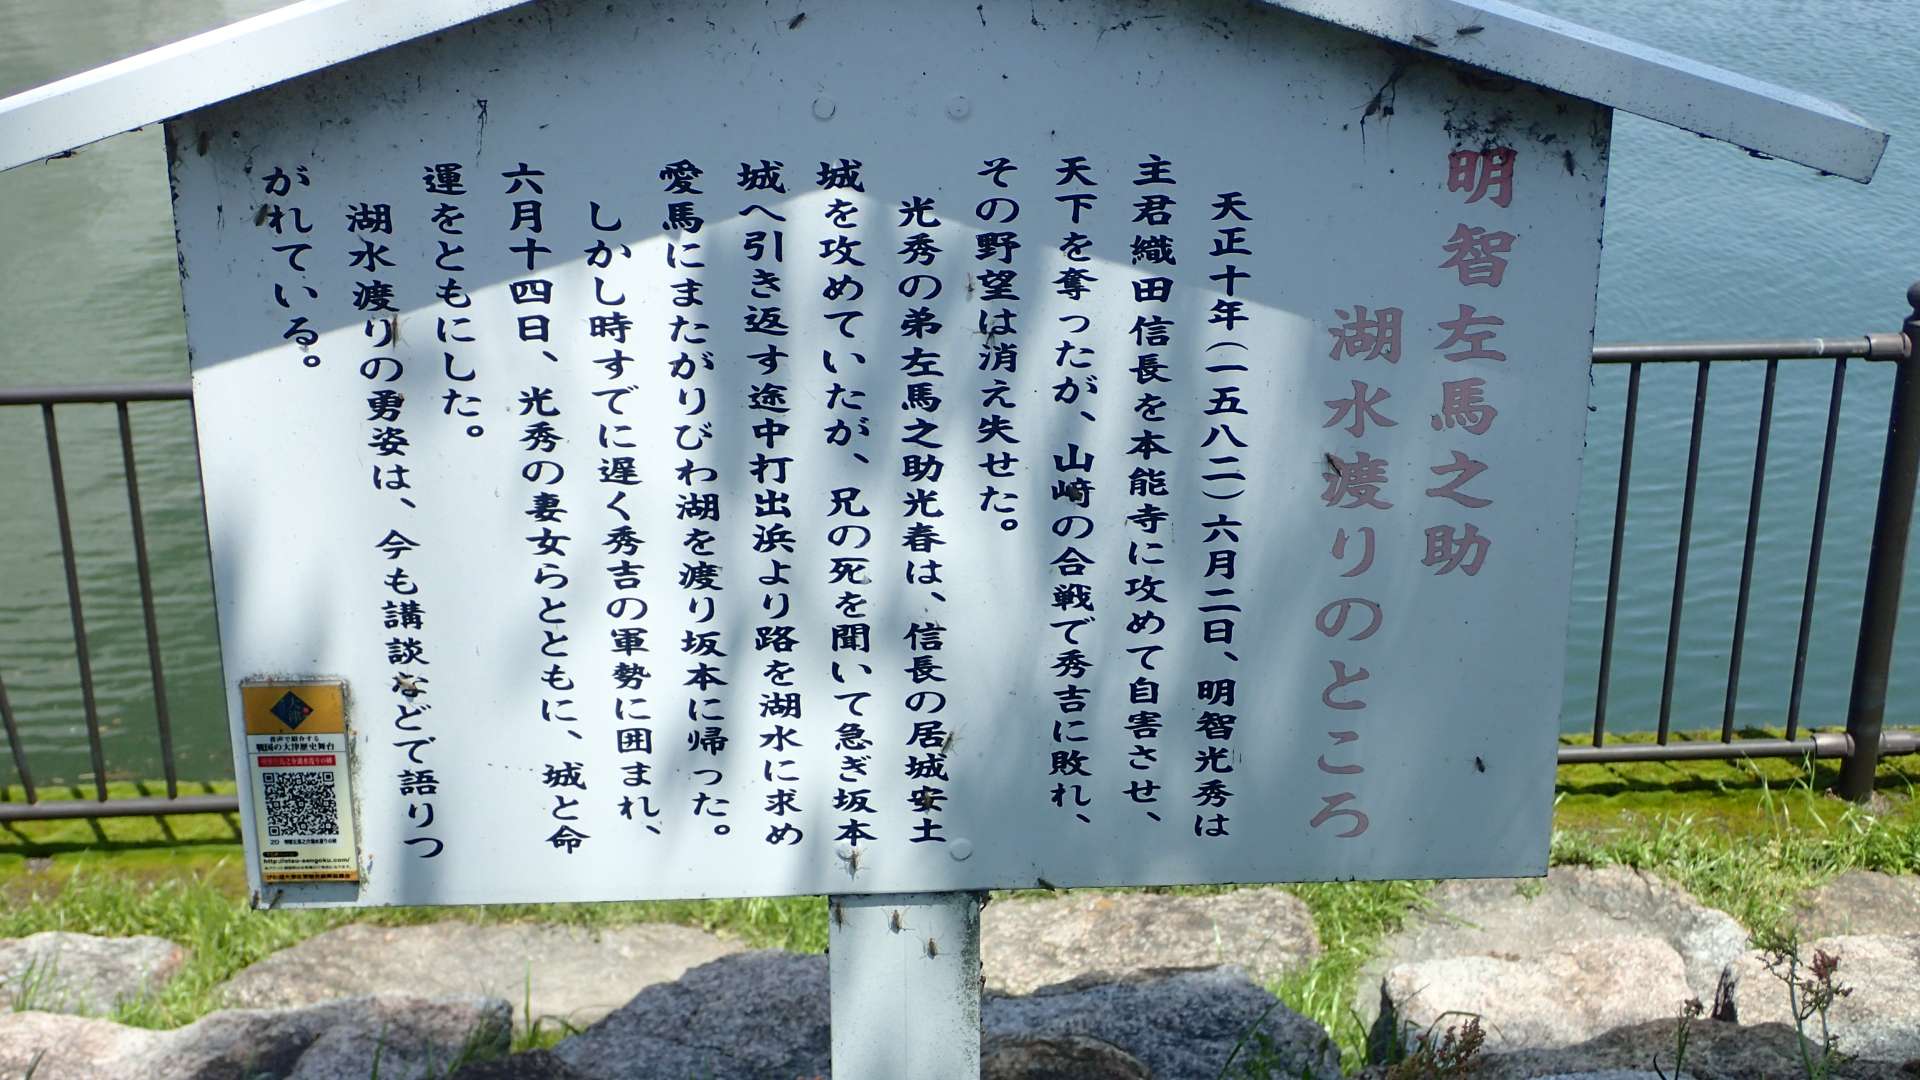 明智左馬之助
湖水渡りのところ
天正十年(一五八二)六月二日、明智光秀は
主君織田信長を本能寺に攻めて自害させ、
天下を奪ったが、山﨑の合戦で秀吉に敗れ、
その野望は消え失せた。
光秀の弟左馬之助光春は、信長の居城安土
城を攻めていたが、兄の死を聞いて急ぎ坂本
城へ引き返す途中打出浜より路を湖水に求め
愛馬にまたがりびわ湖を渡り坂本に帰った。
しかし時すでに遅く秀吉の軍勢に囲まれ、
六月十四日、光秀の妻女らとともに、城と命
運をともにした。
湖水渡りの勇姿は、今も講談などで語りつ
がれている。
大津
音声で紹介する
戦国の大津歴史舞台
20 明智左馬之介湖水渡りの碑
http://otsu-sengoku.com/